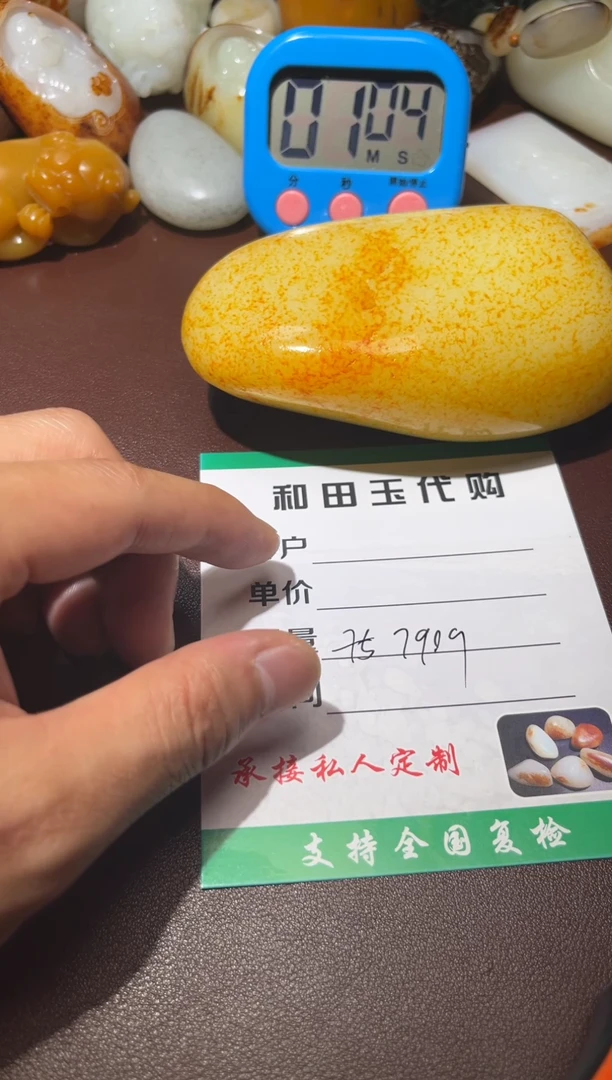 01 04
M S
分 秒 开始/停止
和田玉代购
户
单价
量 75 790g
间
承接私人定制
支持全国复检